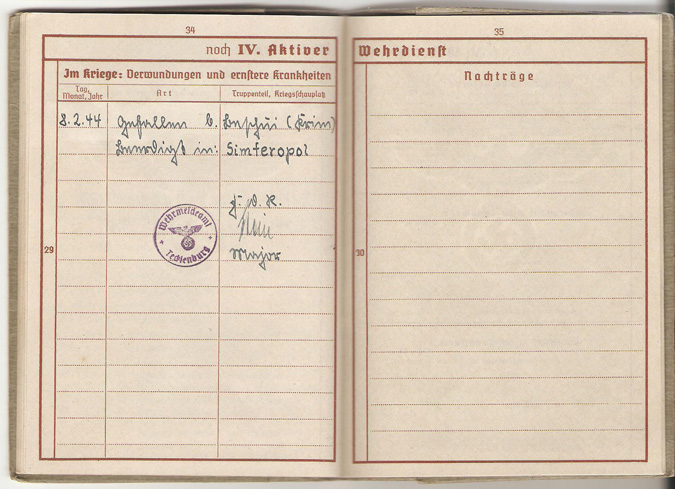 34
noch IV. Aktiver
Im Kriege: Verwundungen und ernstere Krankheiten
Tag, Monat, Jahr
Art
Truppenteil, Kriegsschauplatz
8.2.44 Gefallen b. (Krim)
Beerdigt in: Simferopol
Major
Wehrmeldeamt
Tecklenburg
29
35
Wehrdienst
Nachträge
30